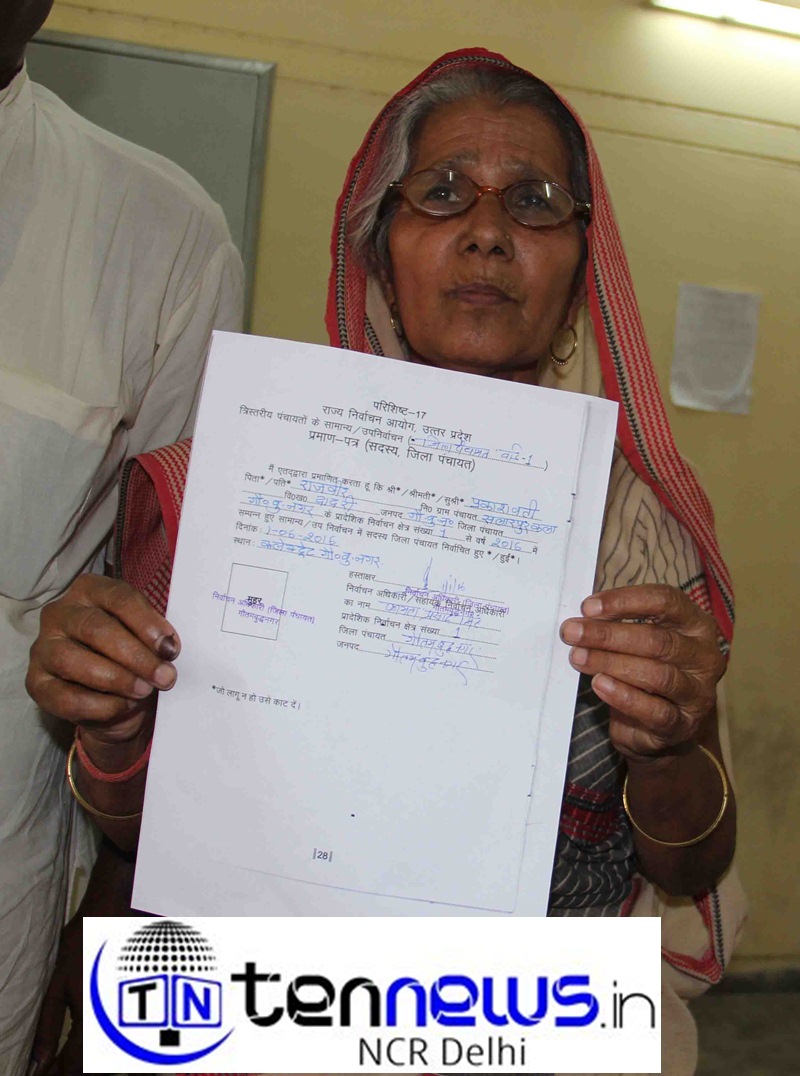 परिशिष्ट-17
राज्य निर्वाचन आयोग, उत्तर प्रदेश
त्रिस्तरीय पंचायतों के सामान्य/उपनिर्वाचन (जिला पंचायत वार्ड-1)
प्रमाण-पत्र (सदस्य, जिला पंचायत)
मैं एतद्द्वारा प्रमाणित करता हूं कि श्री*/श्रीमती*/सुश्री* प्रकाशवती
पिता*/पति* राजवीर नि0 ग्राम पंचायत सलारपुरकला
वि0ख0 दादरी जनपद गौ०बु०न० जिला पंचायत
गौ०बु०नगर के प्रादेशिक निर्वाचन क्षेत्र संख्या 1 से वर्ष 2016 में
सम्पन्न हुए सामान्य/उप निर्वाचन में सदस्य जिला पंचायत निर्वाचित हुए*/हुई*।
दिनांक: 1-06-2016
स्थान: कलेक्ट्रेट गौ०बु०नगर
हस्ताक्षर
निर्वाचन अधिकारी/सहायक निर्वाचन अधिकारी
का नाम
प्रादेशिक निर्वाचन क्षेत्र संख्या 1
जिला पंचायत गौतमबुद्धनगर
जनपद गौतमबुद्धनगर
मुहर
निर्वाचन अधिकारी (जिला पंचायत)
गौतमबुद्धनगर
*जो लागू न हो उसे काट दें।
||28||
TN tennews.in
NCR Delhi